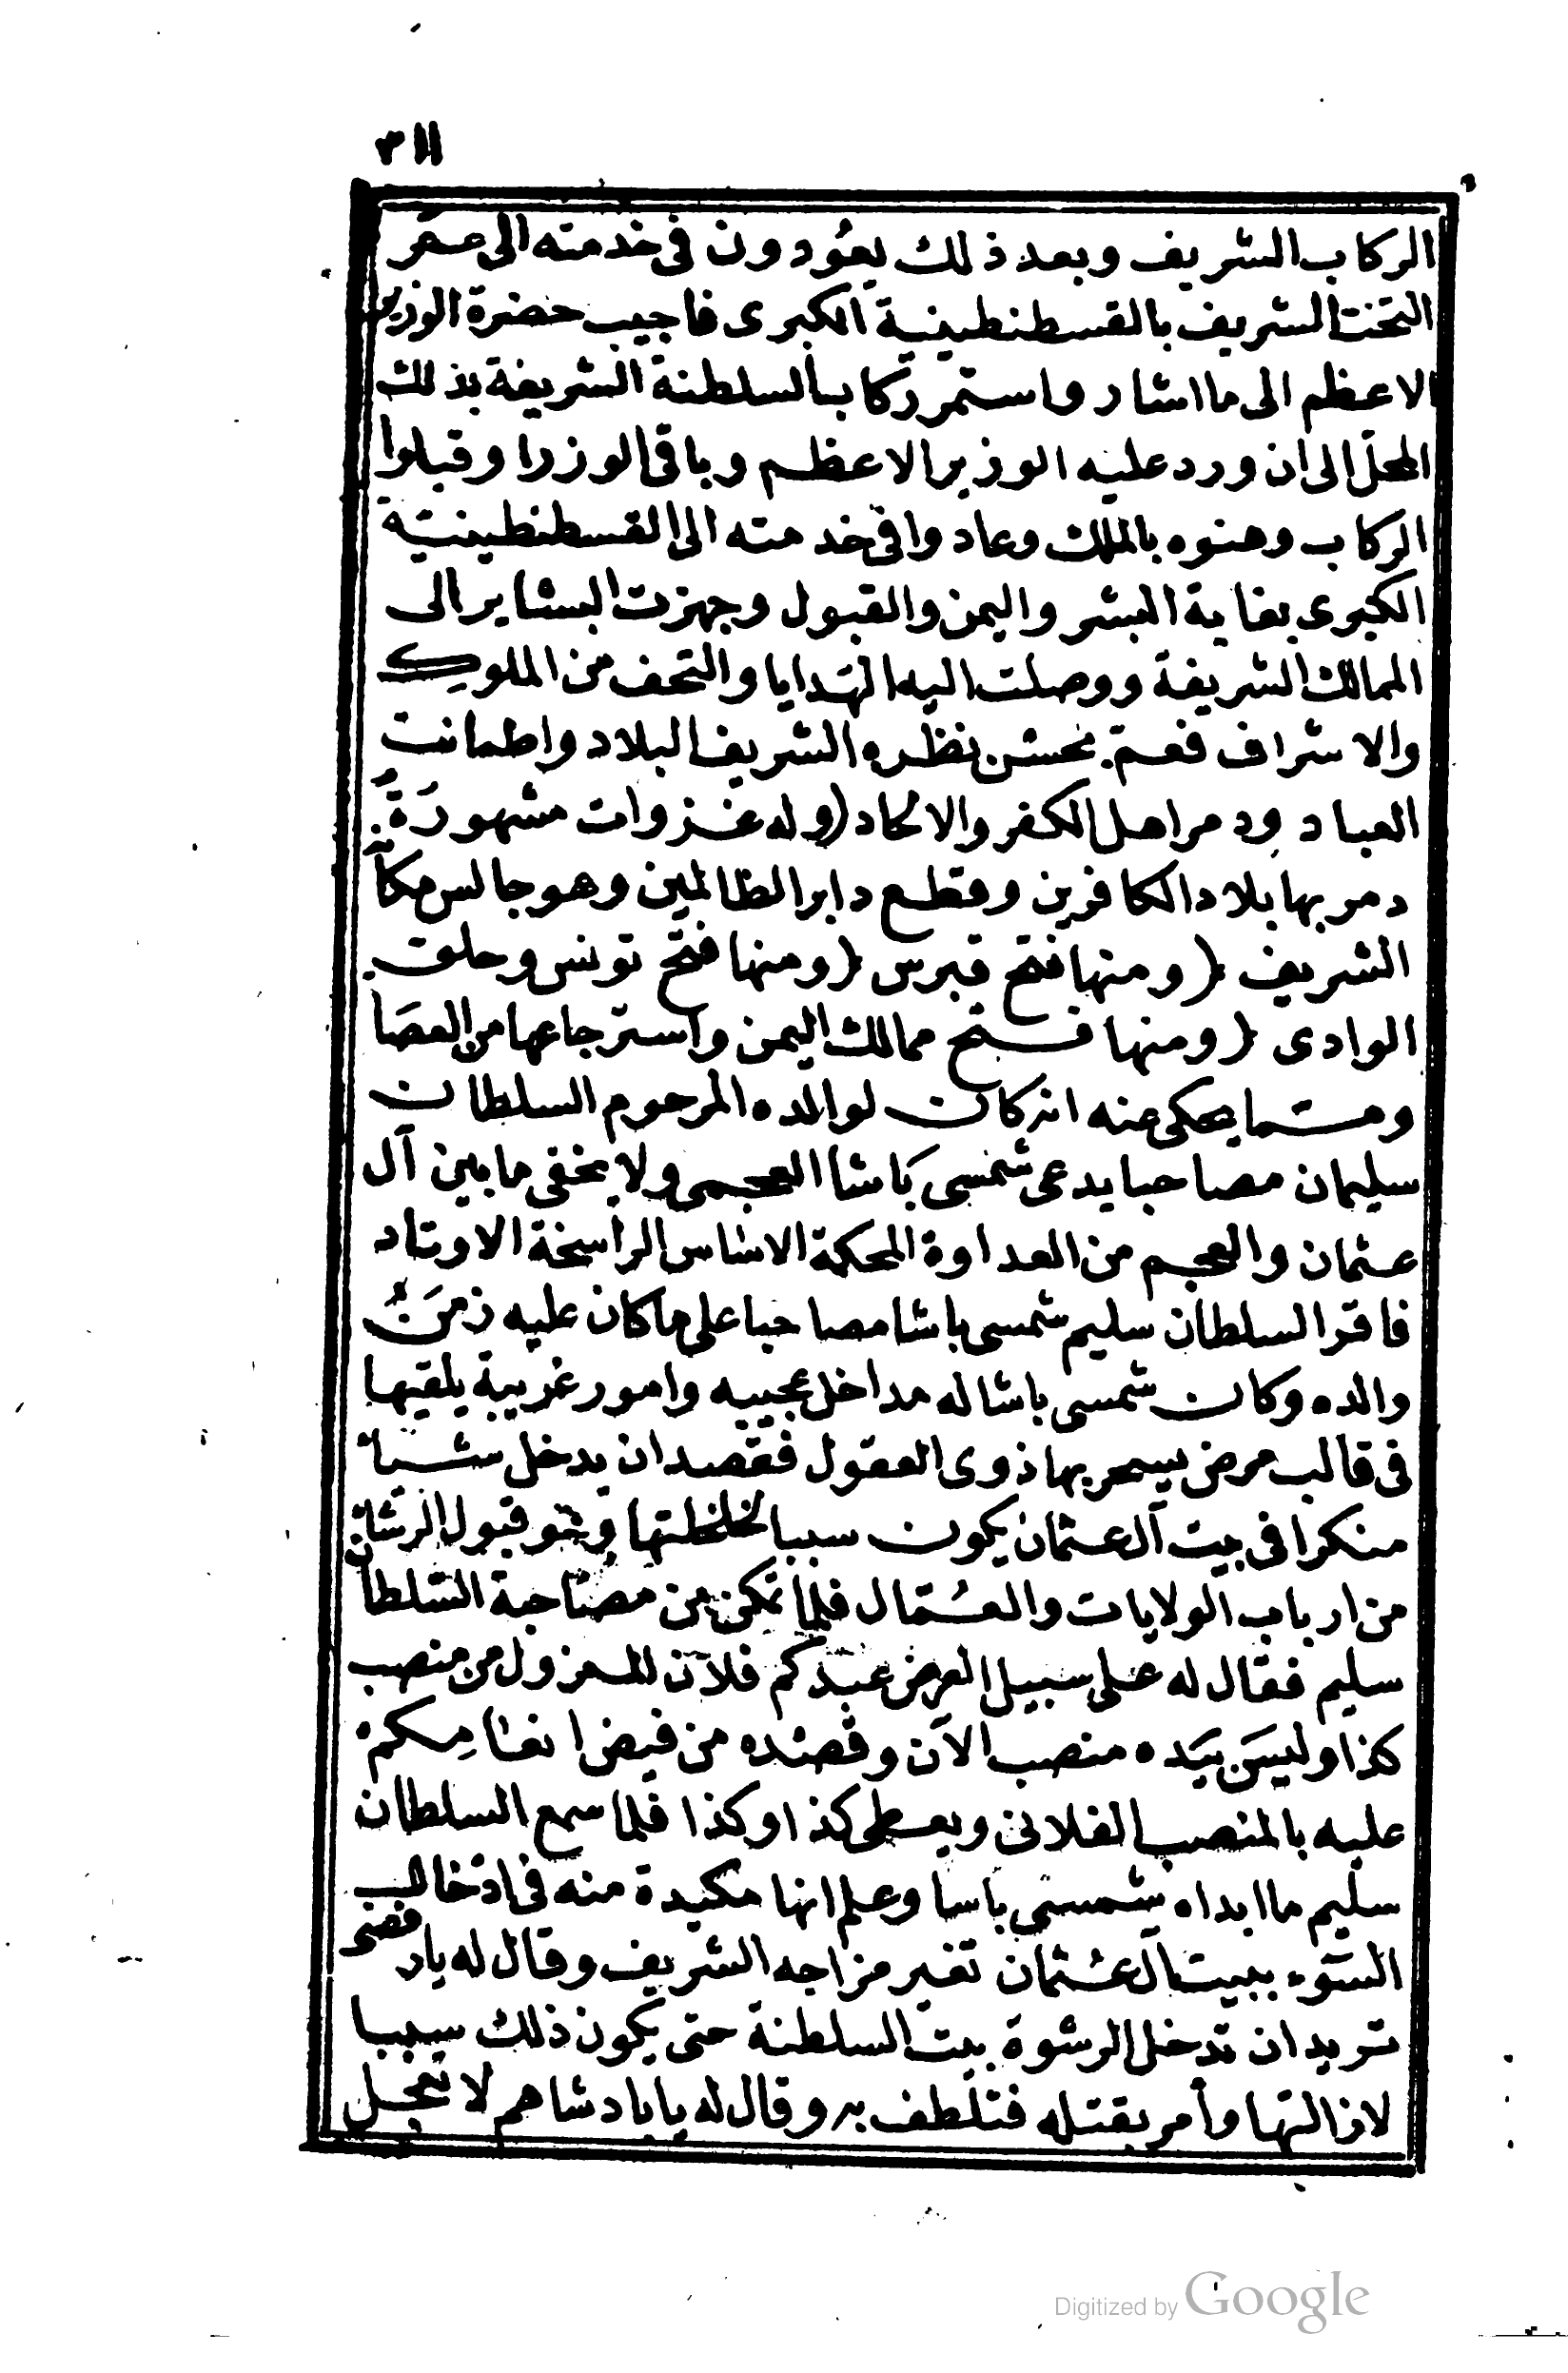 ٣١١
الركاب الشريف وبعد ذلك يعودون فى خدمته الى مقر
التخت الشريف بالقسطنطينية الكبرى فاجيب حضرة الوزير
الاعظم الى ما اشار واستمر ركاب السلطنة الشريفة بذلك
المحل الى ان ورد عليه الوزير الاعظم وباقى الوزرا وقبلوا
الركاب وهنوه بالملك وعادوا فى خدمته الى القسطنطينية
الكبرى بغاية البشر واليمن والقبول وجهزت البشاير الى
الممالك الشريفة ووصلت اليه الهدايا والتحف من الملوك
والاشراف فعم بحسن نظره الشريف البلاد واطمانت
العباد ودمر اهل الكفر والالحاد (وله غزوات مشهورة
دمر بها بلاد الكافرين وقطع دابر الظالمين وهو جالس مكانه
الشريف (ومنها فتح قبرس (ومنها فتح تونس وحلق
الوادى (ومنها فتح ممالك اليمن واسترجاعها من العصا
ومما يحكى عنه انه كان لوالده المرحوم السلطان
سليمان مصاحبا يدعى شمسى باشا العجمى ولا يخفى ما بين آل
عثمان والعجم من العداوة المحكمة الاساس الراسخة الاوتاد
فاقر السلطان سليم شمسى باشا مصاحبا على ما كان عليه زمن
والده وكان شمسى باشا له مداخل عجيبه وامور غريبة يلقيها
فى قالب مرض يسحر بها ذوى العقول فقصد ان يدخل شيأ
منكرا فى بيت آل عثمان يكون سببا لخلخلتها وهو قبول الرشا
من ارباب الولايات والعمال فلما تمكن من مصاحبة السلطان
سليم فقال له على سبيل العرض عبدكم فلان المعزول من منصب
كذا وليس بيده منصب الآن وقصده من فيض انعامكم
عليه بالمنصب الفلانى ويعطى كذا وكذا فلما سمع السلطان
سليم ما ابداه شمسى باسا وعلم انها مكيدة منه فى ادخال
السوء ببيت آل عثمان تغير مزاجه الشريف وقال له يا رفضى
تريد ان تدخل الرشوة بيت السلطنة حتى يكون ذلك سببا
لازالتها وأمر بقتله فتلطف به وقال له يا بادشاهم لا تعجل
Digitized by Google